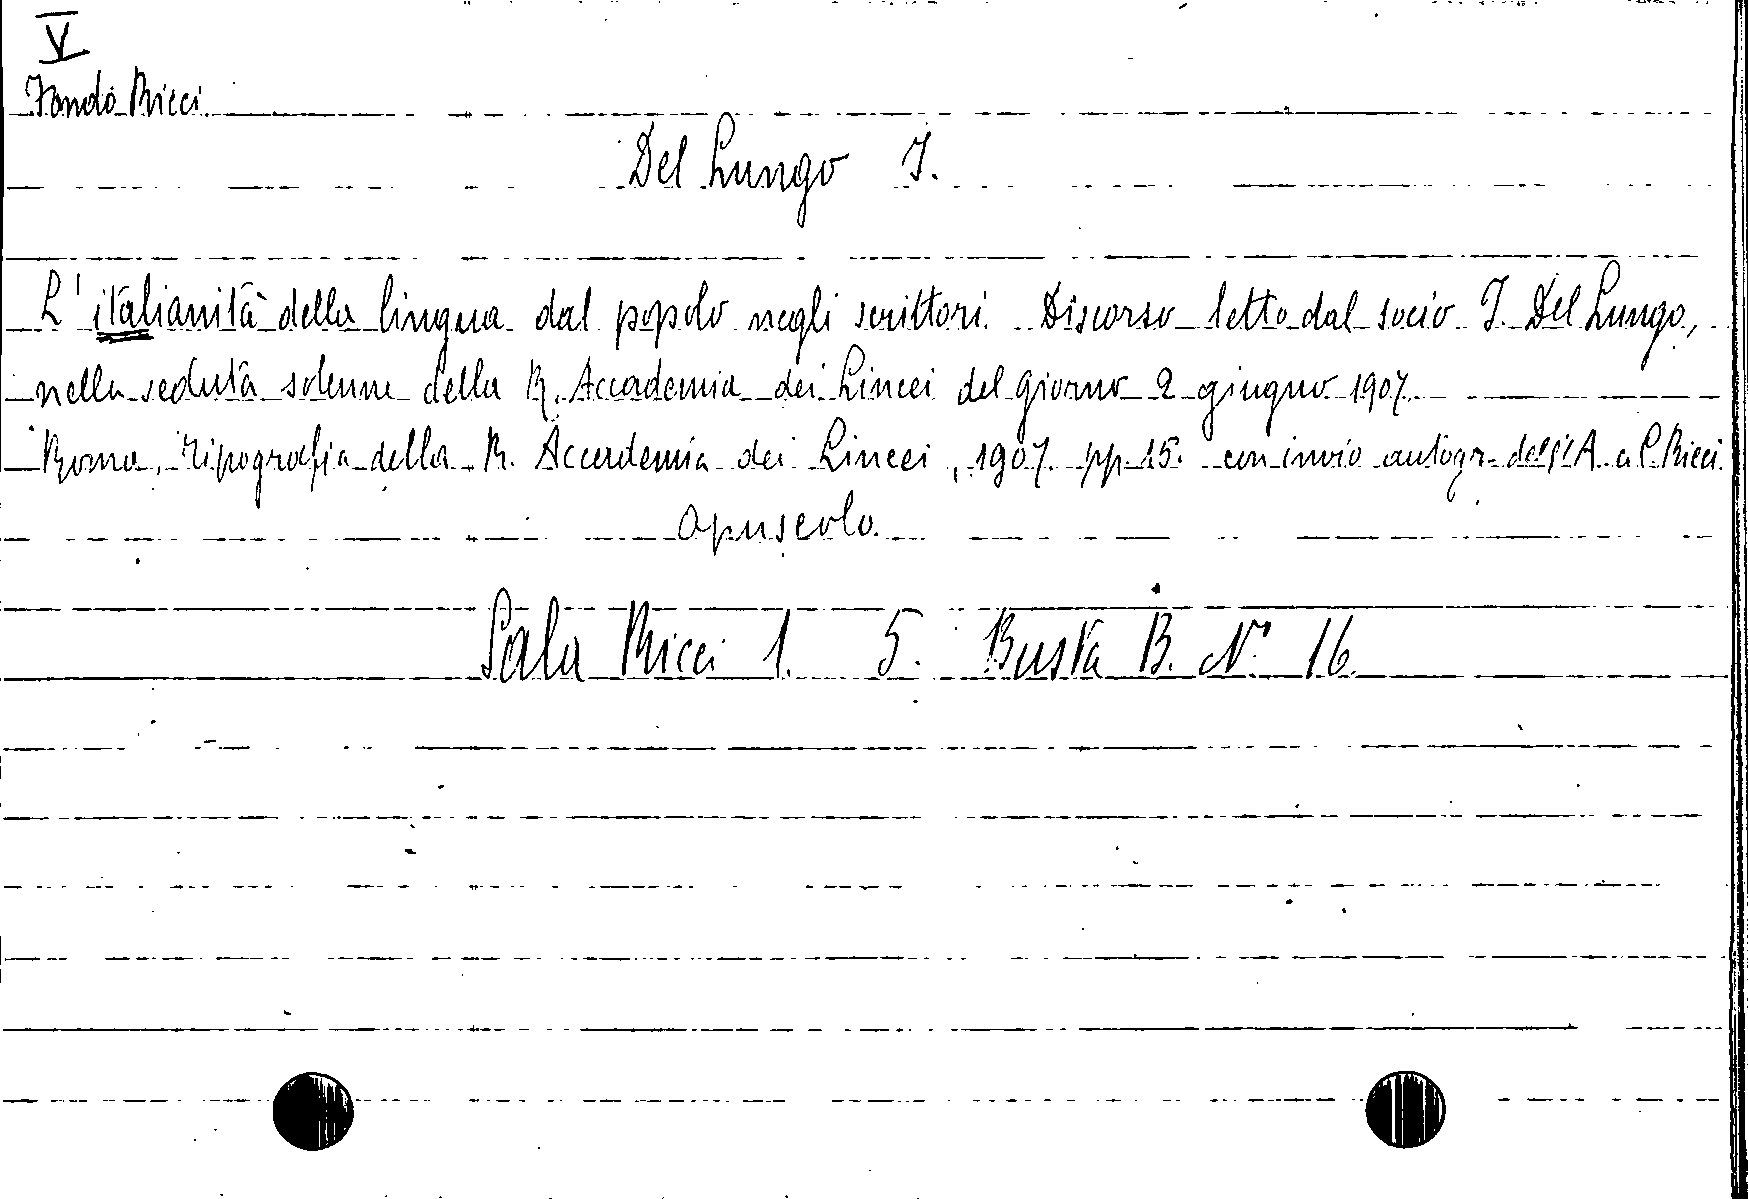 V
Fondo Ricci
Del Lungo I.
L'italianità della lingua dal popolo negli scrittori. Discorso letto dal socio I. Del Lungo,
nella seduta solenne della R. Accademia dei Lincei del giorno 2 giugno 1907.
Roma, Tipografia della R. Accademia dei Lincei, 1907. pp. 15. con invio autogr. dell'A. a C. Ricci.
Opuscolo.
Sala Ricci 1. 5. Busta B. N° 16.